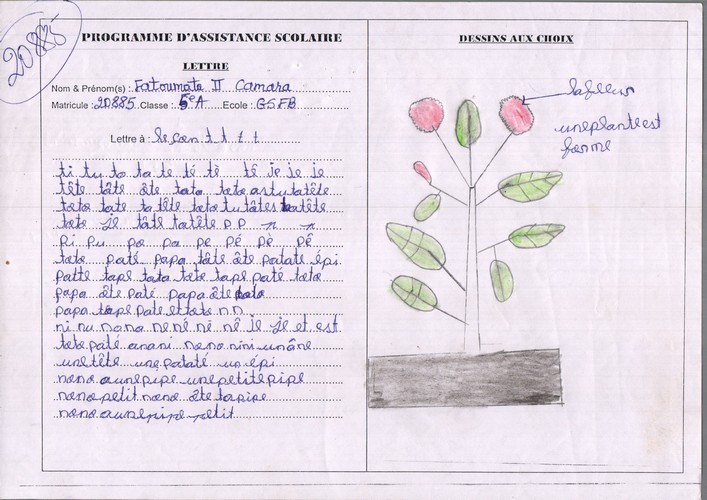 20885
PROGRAMME D'ASSISTANCE SCOLAIRE
LETTRE
Nom & Prénom(s) : Fatoumata II Camara
Matricule : 20885 Classe : 5e A Ecole : GSFB
Lettre à : leçon t t t t
ti tu to ta te té tê tê je je je
tête tâte ôte tata toto as tu ta tête
toto tate ta tête toto tu tâtes ta tête
toto je tâte ta tête p p
pi pu po pa pe pé pè pê
toto paté papa tâte ôte patate épi
patte tape tata tete tape paté toto
papa ôte paté papa ôte
papa tape pate et toto n n
ni nu no na ne né nè nê je je et est
toto paté anani nono nini un âne
une tête une pataté un épi
nono a une pipe une petite pipe
nono petit nono ôte ta pipe
nono a une pipe petit
DESSINS AUX CHOIX
la fleur
une plante est
forme